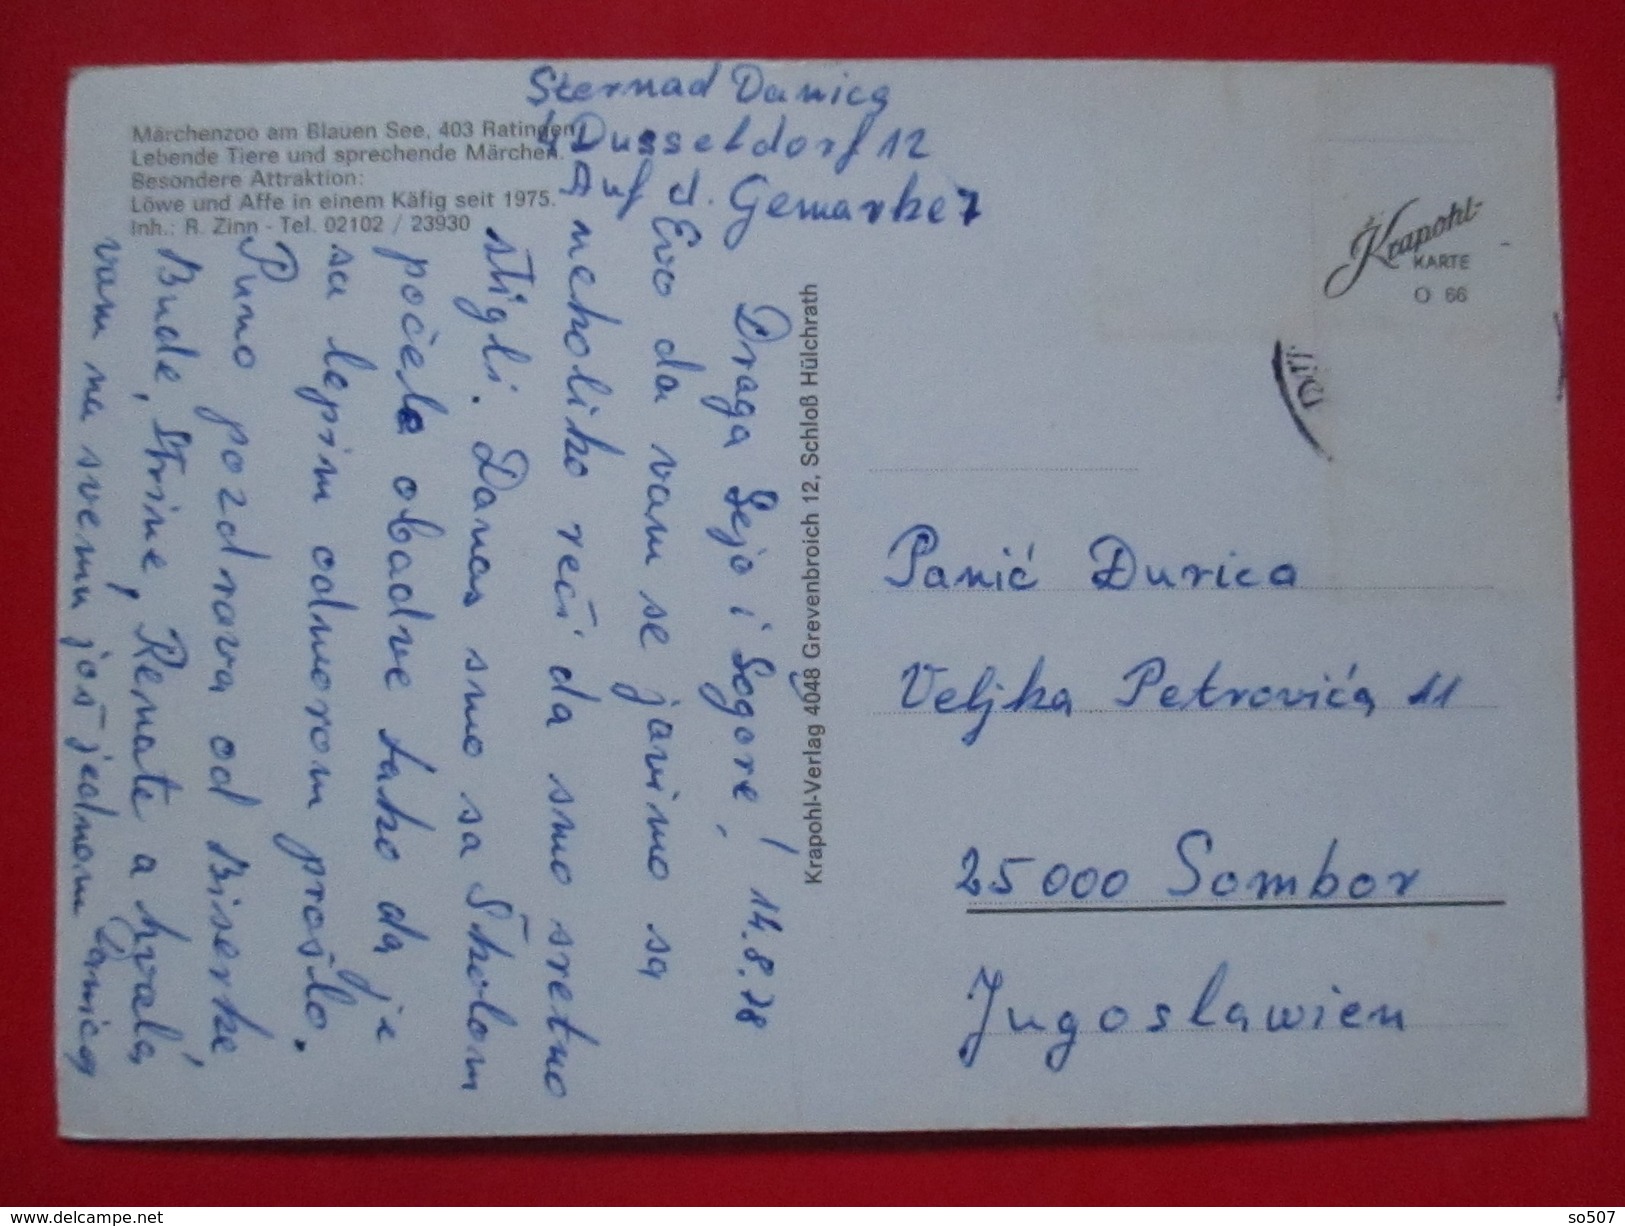 Märchenzoo am Blauen See, 403 Ratingen
Lebende Tiere und sprechende Märchen.
Besondere Attraktion:
Löwe und Affe in einem Käfig seit 1975.
Inh.: R. Zinn - Tel. 02102 / 23930
Sternad Danica
4 Dusseldorf 12
Auf d. Gemarke 7
14.8.78
Draga Sejo i Sogore!
Evo da vam se javimo sa
nekoliko reči da smo sretno
stigli. Danas smo sa Školom
počele obadve tako da je
sa lepim odmorom prošlo.
Puno pozdrava od Biserke,
Bude, Strine, Renate a hvala
vam na svemu još jednom Danica
Krapohl-Verlag 4048 Grevenbroich 12, Schloß Hülchrath
Krapohl-
KARTE
O 66
Panić Đurica
Veljka Petrovića 11
25000 Sombor
Jugoslawien
www.delcampe.net
so507